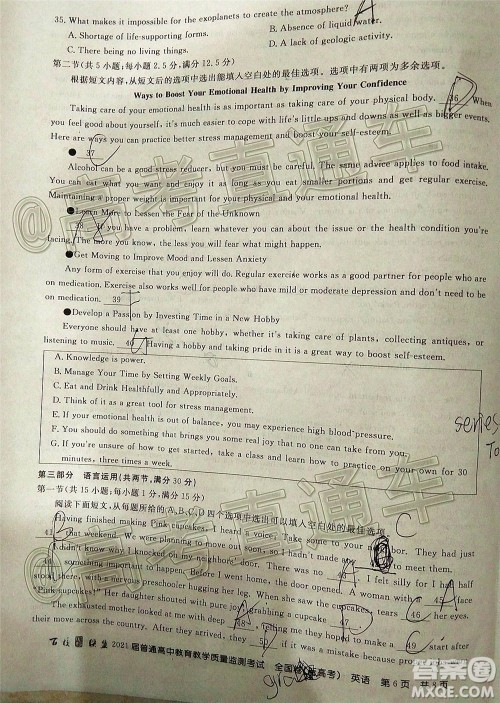 35. What makes it impossible for the exoplanets to create the atmosphere? A
A. Shortage of life-supporting forms. B. Absence of liquid water.
C. There being no living things. D. A lack of geologic activity.
第二节(共5小题;每小题2.5分,满分12.5分)
根据短文内容,从短文后的选项中选出能填入空白处的最佳选项。选项中有两项为多余选项。
Ways to Boost Your Emotional Health by Improving Your Confidence
Taking care of your emotional health is as important as taking care of your physical body. 36 When
you feel good about yourself, it's much easier to cope with life's little ups and downs as well as bigger events.
Here are ways you can practice better stress management and boost your self-esteem.
● 37
Alcohol can be a good stress reducer, but you must be careful. The same advice applies to food intake.
You can eat what you want and enjoy it as long as you eat smaller portions and get regular exercise.
Maintaining a proper weight is important for your physical and your emotional health.
●Learn More to Lessen the Fear of the Unknown
38 If you have a problem, learn whatever you can about the issue or the health condition you're
facing. The more you know, the less you will fear what might happen.
●Get Moving to Improve Mood and Lessen Anxiety
Any form of exercise will do. Regular exercise works as a good partner for people who are
on medication. Exercise also works well for people who have mild or moderate depression and don't need to be
on medication. 39
●Develop a Passion by Investing Time in a New Hobby
Everyone should have at least one hobby, whether it's taking care of plants, collecting antiques, or
listening to music. 40 Having a hobby and taking pride in it is a great way to boost self-esteem.
A. Knowledge is power.
B. Manage Your Time by Setting Weekly Goals.
C. Eat and Drink Healthfully and Appropriately.
D. Think of it as a great tool for stress management.
E. If your emotional health is out of balance, you may experience high blood pressure.
F. You should do something that brings you some real joy that no one can take from you.
G. If you're unsure of how to get started, take a class and learn how to practice on your own for 30
minutes, three times a week.
series
To
第三部分 语言运用(共两节,满分30分)
第一节(共15小题;每小题1分,满分15分)
阅读下面短文,从每题所给的A、B、C、D四个选项中选出可以填入空白处的最佳选项。 C
Having finished making Pink cupcakes, I got an idea. Take some to your neighbor. They had just
41 that weekend. We were planning to move out soon, so I hadn't made any to meet them.
I didn't know why I knocked on my neighbors' door. There was no I felt silly for I had half
44 something important to happen. Before I went home, the door opened. A woman with a 45 face
stood there, with a preschooler hugging her leg. When she saw the cupcakes, tears 46 her eyes.
"Pink cupcakes!" Her daughter shouted with pure joy, grabbing a cupcake 47
The exhausted mother looked at me with deep 48 telling me they hoped to make a 49 start after
their move across the country. After they arrived, they 50 if it was a mistake because people
百校联盟2021届普通高中教育教学质量监测考试 全国卷(新高考) 英语 第6页 共8页
高考直通车
高考直通车
答案圈
MXQE.COM